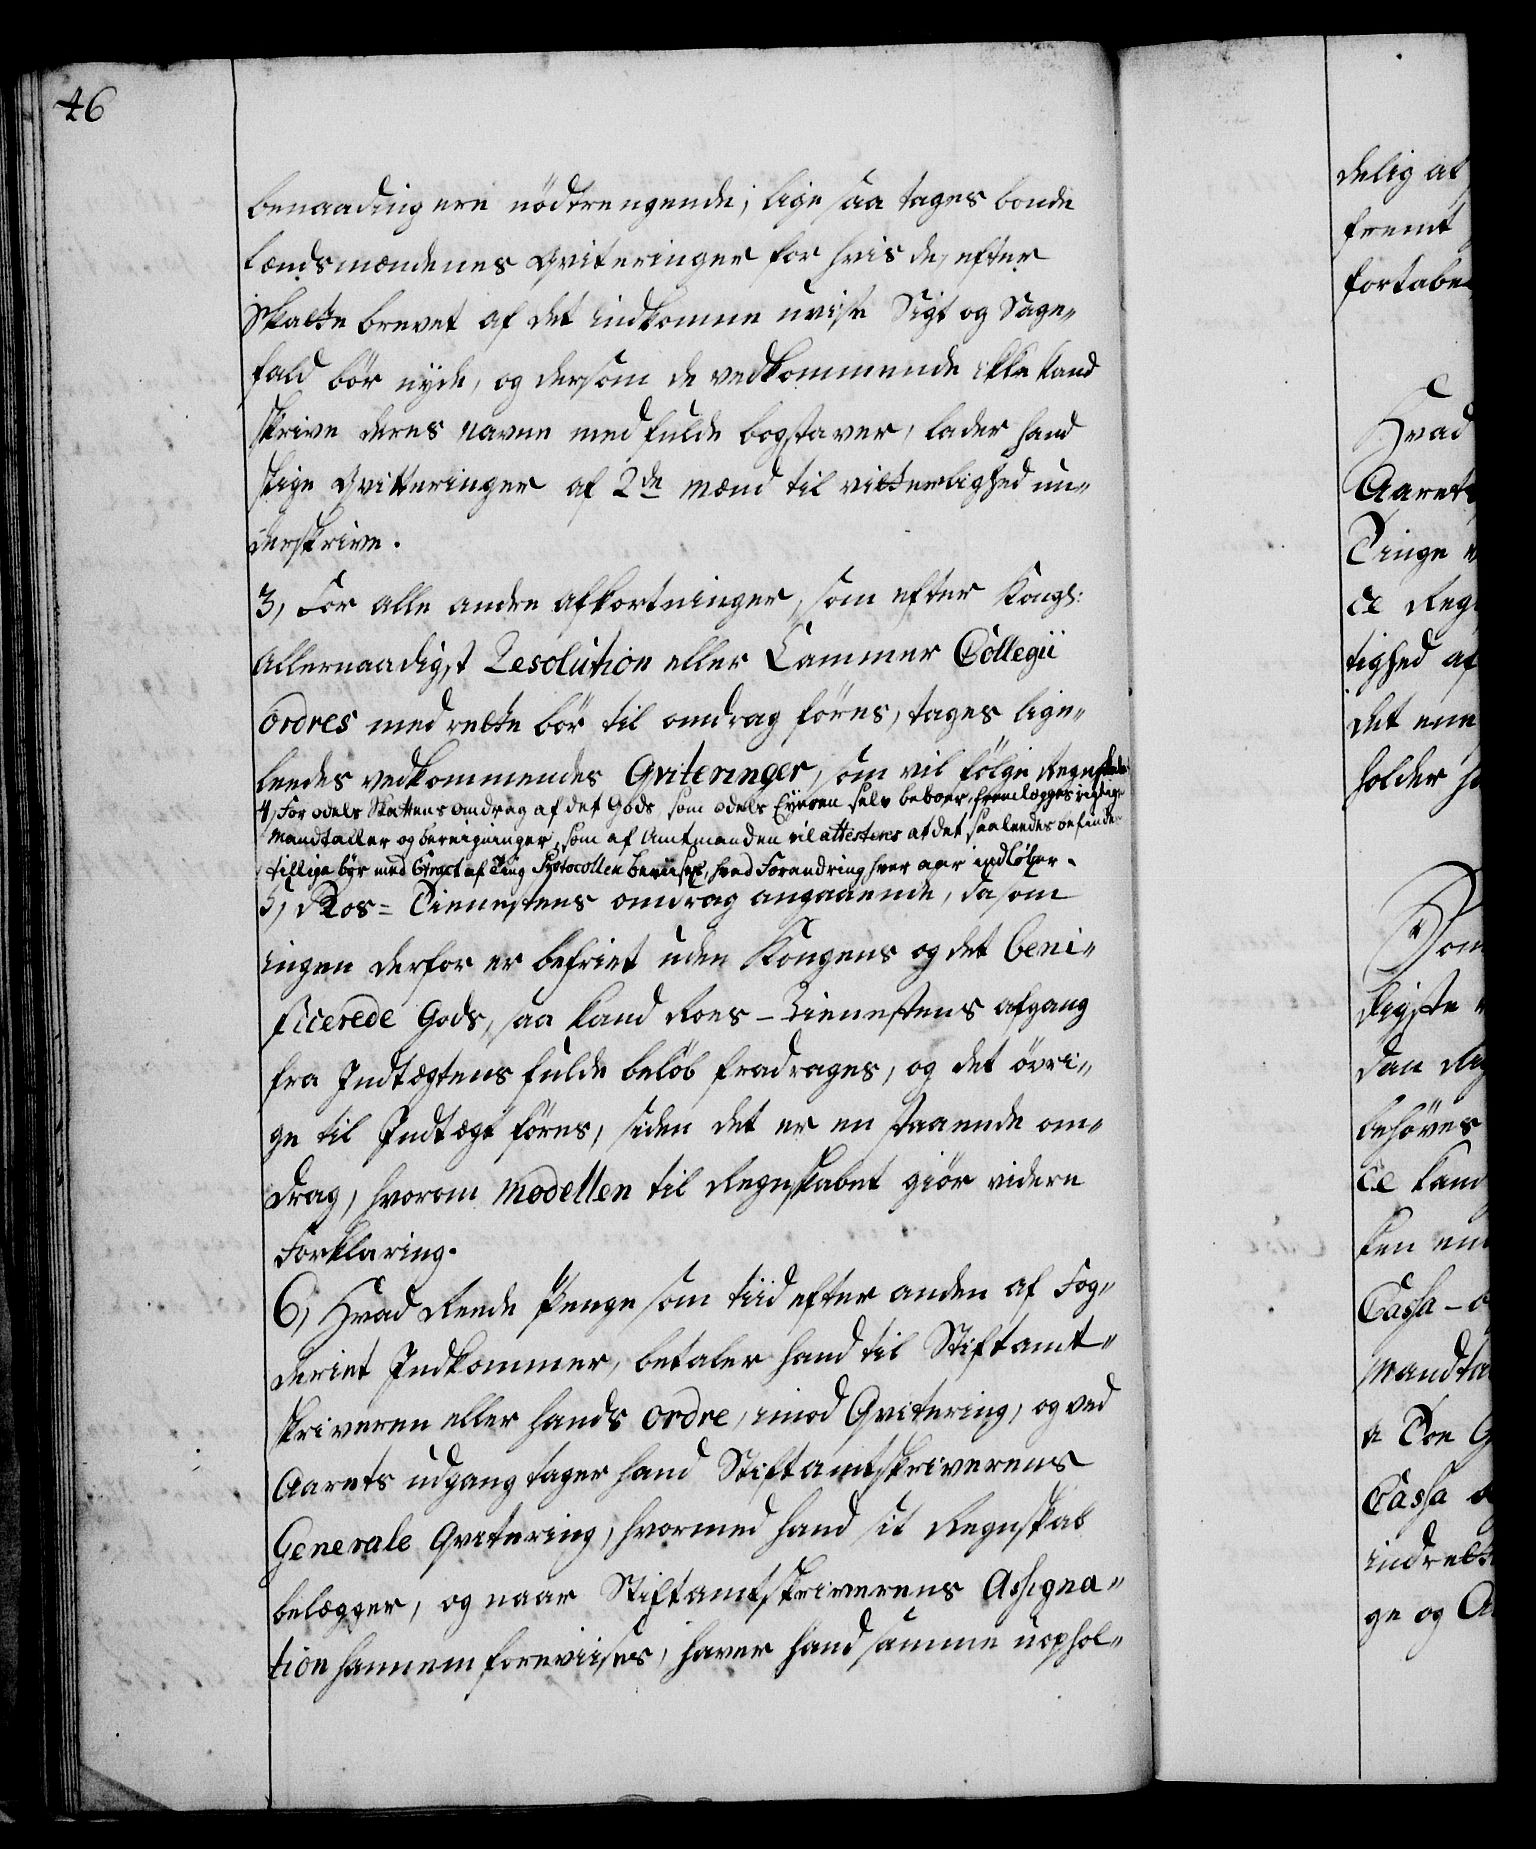 46
benaading ere nödtrengende, lige saa tages bonde
Lendsmændenes Qviteringer for hvis de, efter
Skatte brevet af det indkomne uvise Sigt og Sage„
fald bör nyde, og dersom de vedkommende ikke kand
skrive deres navne med fulde bogstaver, lader hand
slige Qvitteringer af 2de mænd til vitterlighed un„
derskrive.
3, For alle andre afkortninger, som efter Kongl:
allernaadigst Resolution eller Cammer Collegii
ordres med rette bör til omdrag föres, tages lige„
leedes vedkommendes Qviteringer, som vil fölge Regnskabet
4, For odels Skattens omdrag af det Gods, som odels Eyeren selv beboer, fremlegges rigtige
Mandtaller og berigninger, som af Amtmanden vil attesteres at det saaleedes befindes
tillige bör med Extract af Ting Protocollen beviises, hvad Forandring hver aar indløber.
5, Ros= Tienestens omdrag angaaende, da som
ingen derfor er befriet uden Kongens og det beni„
ficerede Gods, saa kand Roes-Tienestens afgang
fra Indtægtens fulde beløb fradrages, og det övri„
ge til Indtægt föres, siden det er en staaende om„
drag, hvorom modellen til Regnskabet giör videre
Forklaring.
6, Hvad Reede Penge som tiid efter anden af Fog„
deriet Indkommer, betaler hand til Stiftamt„
skriveren eller hands ordre, imod Qvitering, og ved
Aarets udgang tager hand Stiftamtskriverens
Generale Qvitering, hvormed hand sit Regnskab
belægger, og naar Stiftamtskriverens Assigna„
tion hannem foreviises, haver hand samme uophol„
delig at
fremt
fortabe
Hvad
Aarets
Tinge
ce Reg
tighed af
det ene
holder
Som
digste
dan
behöves
ce kand
ken
Cassa-
Mandta
a Toe
Cassa
indrette
ge og